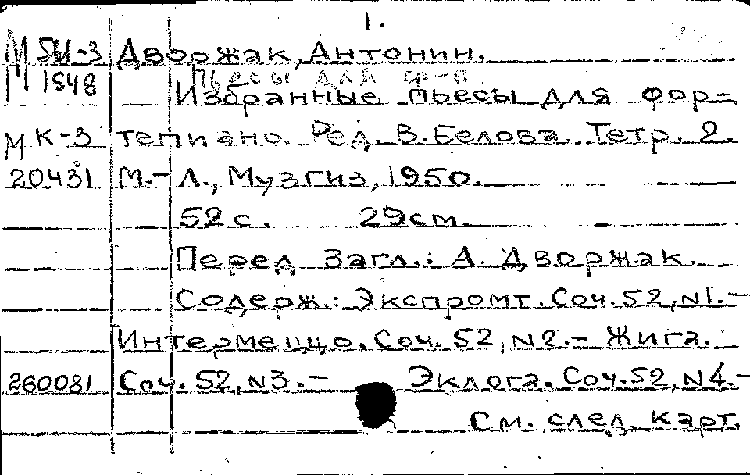 1.
М SИ-3 Дворжак, Антонин.
М 1548 Пьесы для ф-о
Избранные пьесы для фор-
М К-3 тепиано. Ред. В. Белова. Тетр. 2.
20431 М.-Л., Музгиз, 1950.
52 с. 29 см.
Перед загл.: А. Дворжак.
Содерж.: Экспромт. Соч. 52, N1.-
Интермеццо. Соч. 52, N2.- Жига.
260081 Соч. 52, N3.- Эклога. Соч. 52, N4.-
См. след. карт.